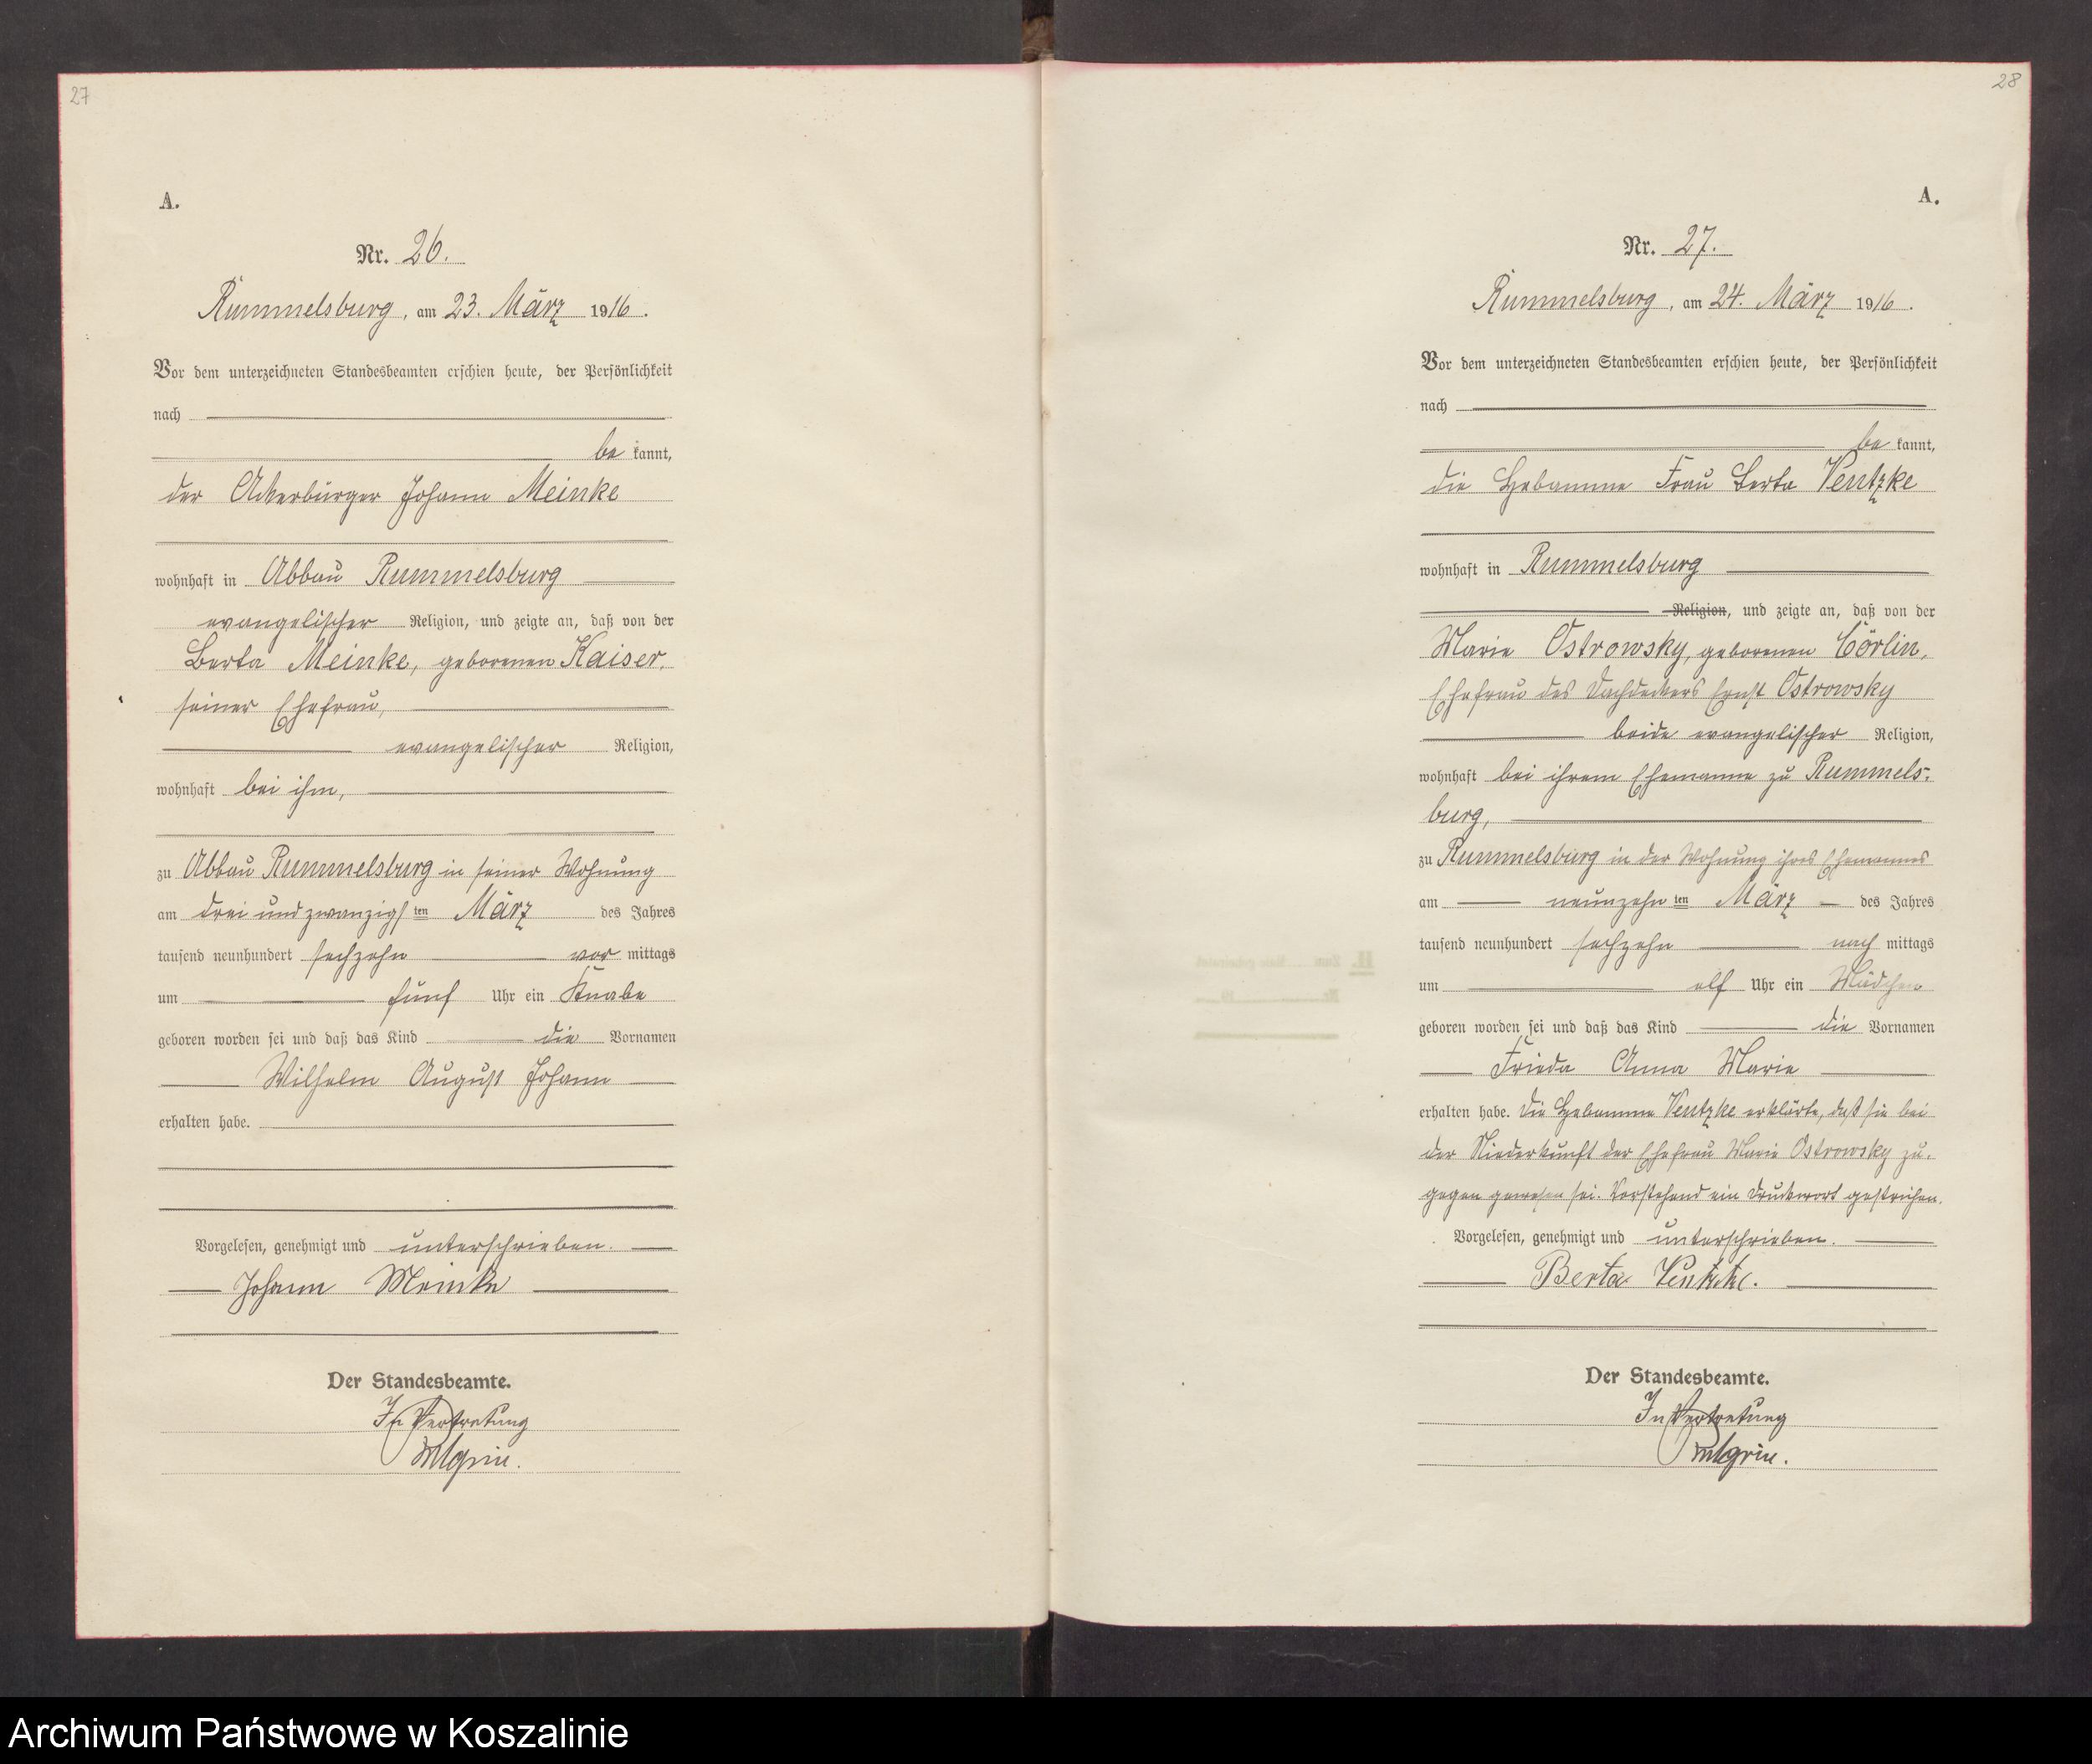 27
A.
Nr. 26.
Rummelsburg, am 23. März 1916.
Vor dem unterzeichneten Standesbeamten erschien heute, der Persönlichkeit
nach
be kannt,
der Ackerbürger Johann Meinke
wohnhaft in Abbau Rummelsburg
evangelischer Religion, und zeigte an, daß von der
Berta Meinke, geborenen Kaiser,
seiner Ehefrau,
evangelischer Religion,
wohnhaft bei ihm,
zu Abbau Rummelsburg in seiner Wohnung
am drei und zwanzigsten März des Jahres
tausend neunhundert sechzehn vor mittags
um fünf Uhr ein Knabe
geboren worden sei und daß das Kind die Vornamen
Wilhelm August Johann
erhalten habe.
Vorgelesen, genehmigt und unterschrieben.
Johann Meinke
Der Standesbeamte.
In Vertretung
28
A.
Nr. 27.
Rummelsburg, am 24. März 1916.
Vor dem unterzeichneten Standesbeamten erschien heute, der Persönlichkeit
nach
be kannt,
die Hebamme Frau Berta Ventzke
wohnhaft in Rummelsburg
Religion, und zeigte an, daß von der
Marie Ostrowsky, geborenen Cörlin,
Ehefrau des Dachdeckers Ernst Ostrowsky
beide evangelischer Religion,
wohnhaft bei ihrem Ehemanne zu Rummels-
burg,
zu Rummelsburg in der Wohnung ihres Ehemannes
am neunzehnten März des Jahres
tausend neunhundert sechzehn nach mittags
um elf Uhr ein Mädchen
geboren worden sei und daß das Kind die Vornamen
Frieda Anna Marie
erhalten habe. Die Hebamme Ventzke erklärte, daß sie bei
der Niederkunft der Ehefrau Marie Ostrowsky zu-
gegen gewesen sei. Vorstehend ein Druckwort gestrichen.
Vorgelesen, genehmigt und unterschrieben.
Berta Ventzke.
Der Standesbeamte.
In Vertretung
Archiwum Państwowe w Koszalinie